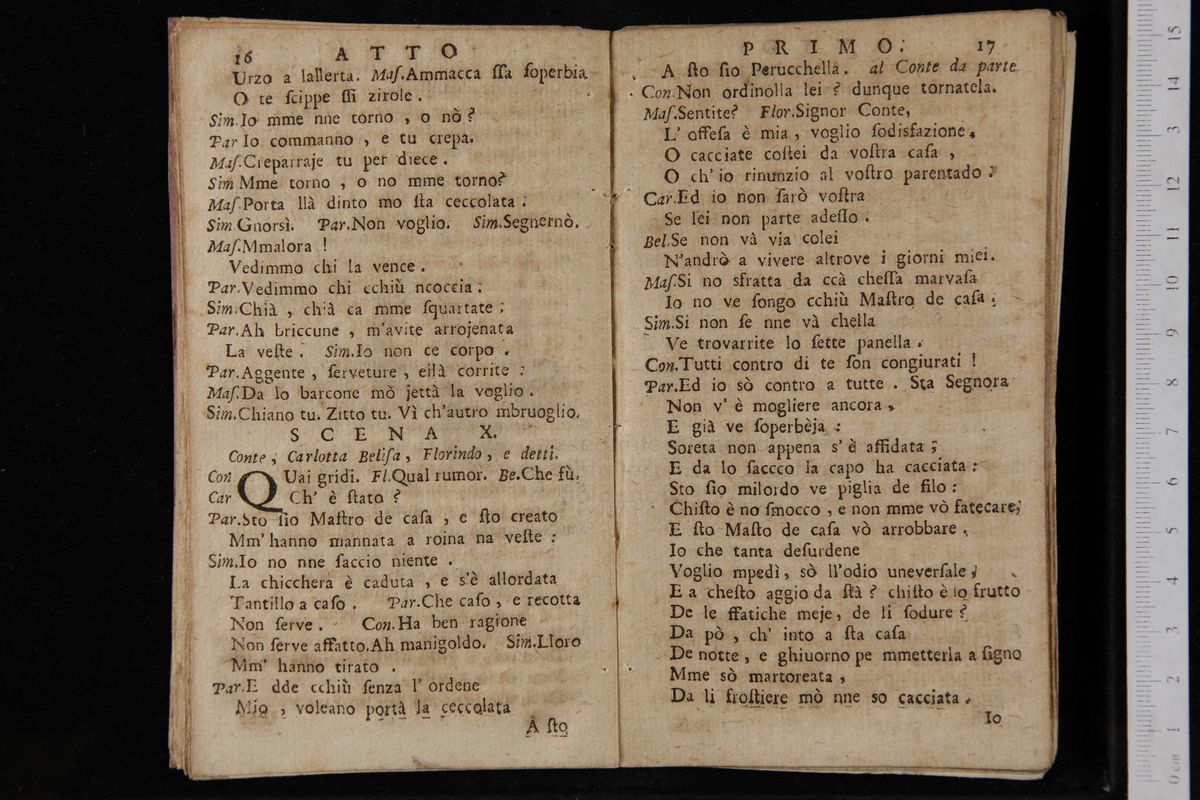 16 A T T O
Urzo a lallerta. Maſ.Ammacca ſſa ſoperbia
O te ſcippe ſſi zirole .
Sim.Io mme nne torno , o nò ?
Par Io commanno , e tu crepa.
Maſ.Creparraje tu per diece .
Sim Mme torno , o no mme torno?
Maſ.Porta llà dinto mo ſta ceccolata .
Sim.Gnorsì. Par.Non voglio. Sim.Segnernò.
Maſ.Mmalora !
Vedimmo chi la vence .
Par.Vedimmo chi cchiù ncoccia .
Sim.Chià , chià ca mme ſquartate .
Par.Ah briccune , m'avite arrojenata
La veſte . Sim.Io non ce corpo .
Par.Aggente , ſerveture , eilà corrite :
Maſ.Da lo barcone mò jettà la voglio .
Sim.Chiano tu. Zitto tu. Vì ch'autro mbruoglio.
S C E N A X.
Conte , Carlotta Beliſa , Florindo , e detti.
Con QUai gridi. Fl.Qual rumor. Be.Che fù.
Car Ch' è ſtato ?
Par.Sto ſio Maſtro de caſa , e ſto creato
Mm' hanno mannata a roina na veſte :
Sim.Io no nne ſaccio niente .
La chicchera è caduta , e s'è allordata
Tantillo a caſo . Par.Che caſo , e recotta
Non ſerve . Con.Ha ben ragione
Non ſerve affatto.Ah manigoldo. Sim.Lloro
Mm' hanno tirato .
Par.E dde cchiù ſenza l' ordene
Mio , voleano portà la ceccolata
A ſto
P R I M O. 17
A ſto ſio Perucchella . al Conte da parte.
Con.Non ordinolla lei ? dunque tornatela.
Maſ.Sentite? Flor.Signor Conte,
L' offeſa è mia , voglio ſodisfazione.
O cacciate coſtei da voſtra caſa ,
O ch' io rinunzio al voſtro parentado .
Car.Ed io non ſarò voſtra
Se lei non parte adeſſo .
Bel.Se non và via colei
N'andrò a vivere altrove i giorni miei.
Maſ.Si no sfratta da ccà cheſſa marvaſa
Io no ve ſongo cchiù Maſtro de caſa .
Sim.Si non ſe nne và chella
Ve trovarrite lo ſette panella .
Con.Tutti contro di te ſon congiurati !
Par.Ed io sò contro a tutte . Sta Segnora
Non v' è mogliere ancora ,
E già ve ſoperbèja :
Soreta non appena s' è affidata ;
E da lo ſaccco la capo ha cacciata :
Sto ſio milordo ve piglia de filo :
Chiſto è no ſmocco , e non mme vò fatecare;
E ſto Maſto de caſa vò arrobbare .
Io che tanta deſurdene
Voglio mpedì , sò ll'odio uneverſale .
E a cheſto aggio da ſtà ? chiſto è lo frutto
De le ffatiche meje, de li ſodure ?
Da pò , ch' into a ſta caſa
De notte , e ghiuorno pe mmetterla a ſigno
Mme sò martoreata ,
Da li froſtiere mò nne so cacciata .
Io